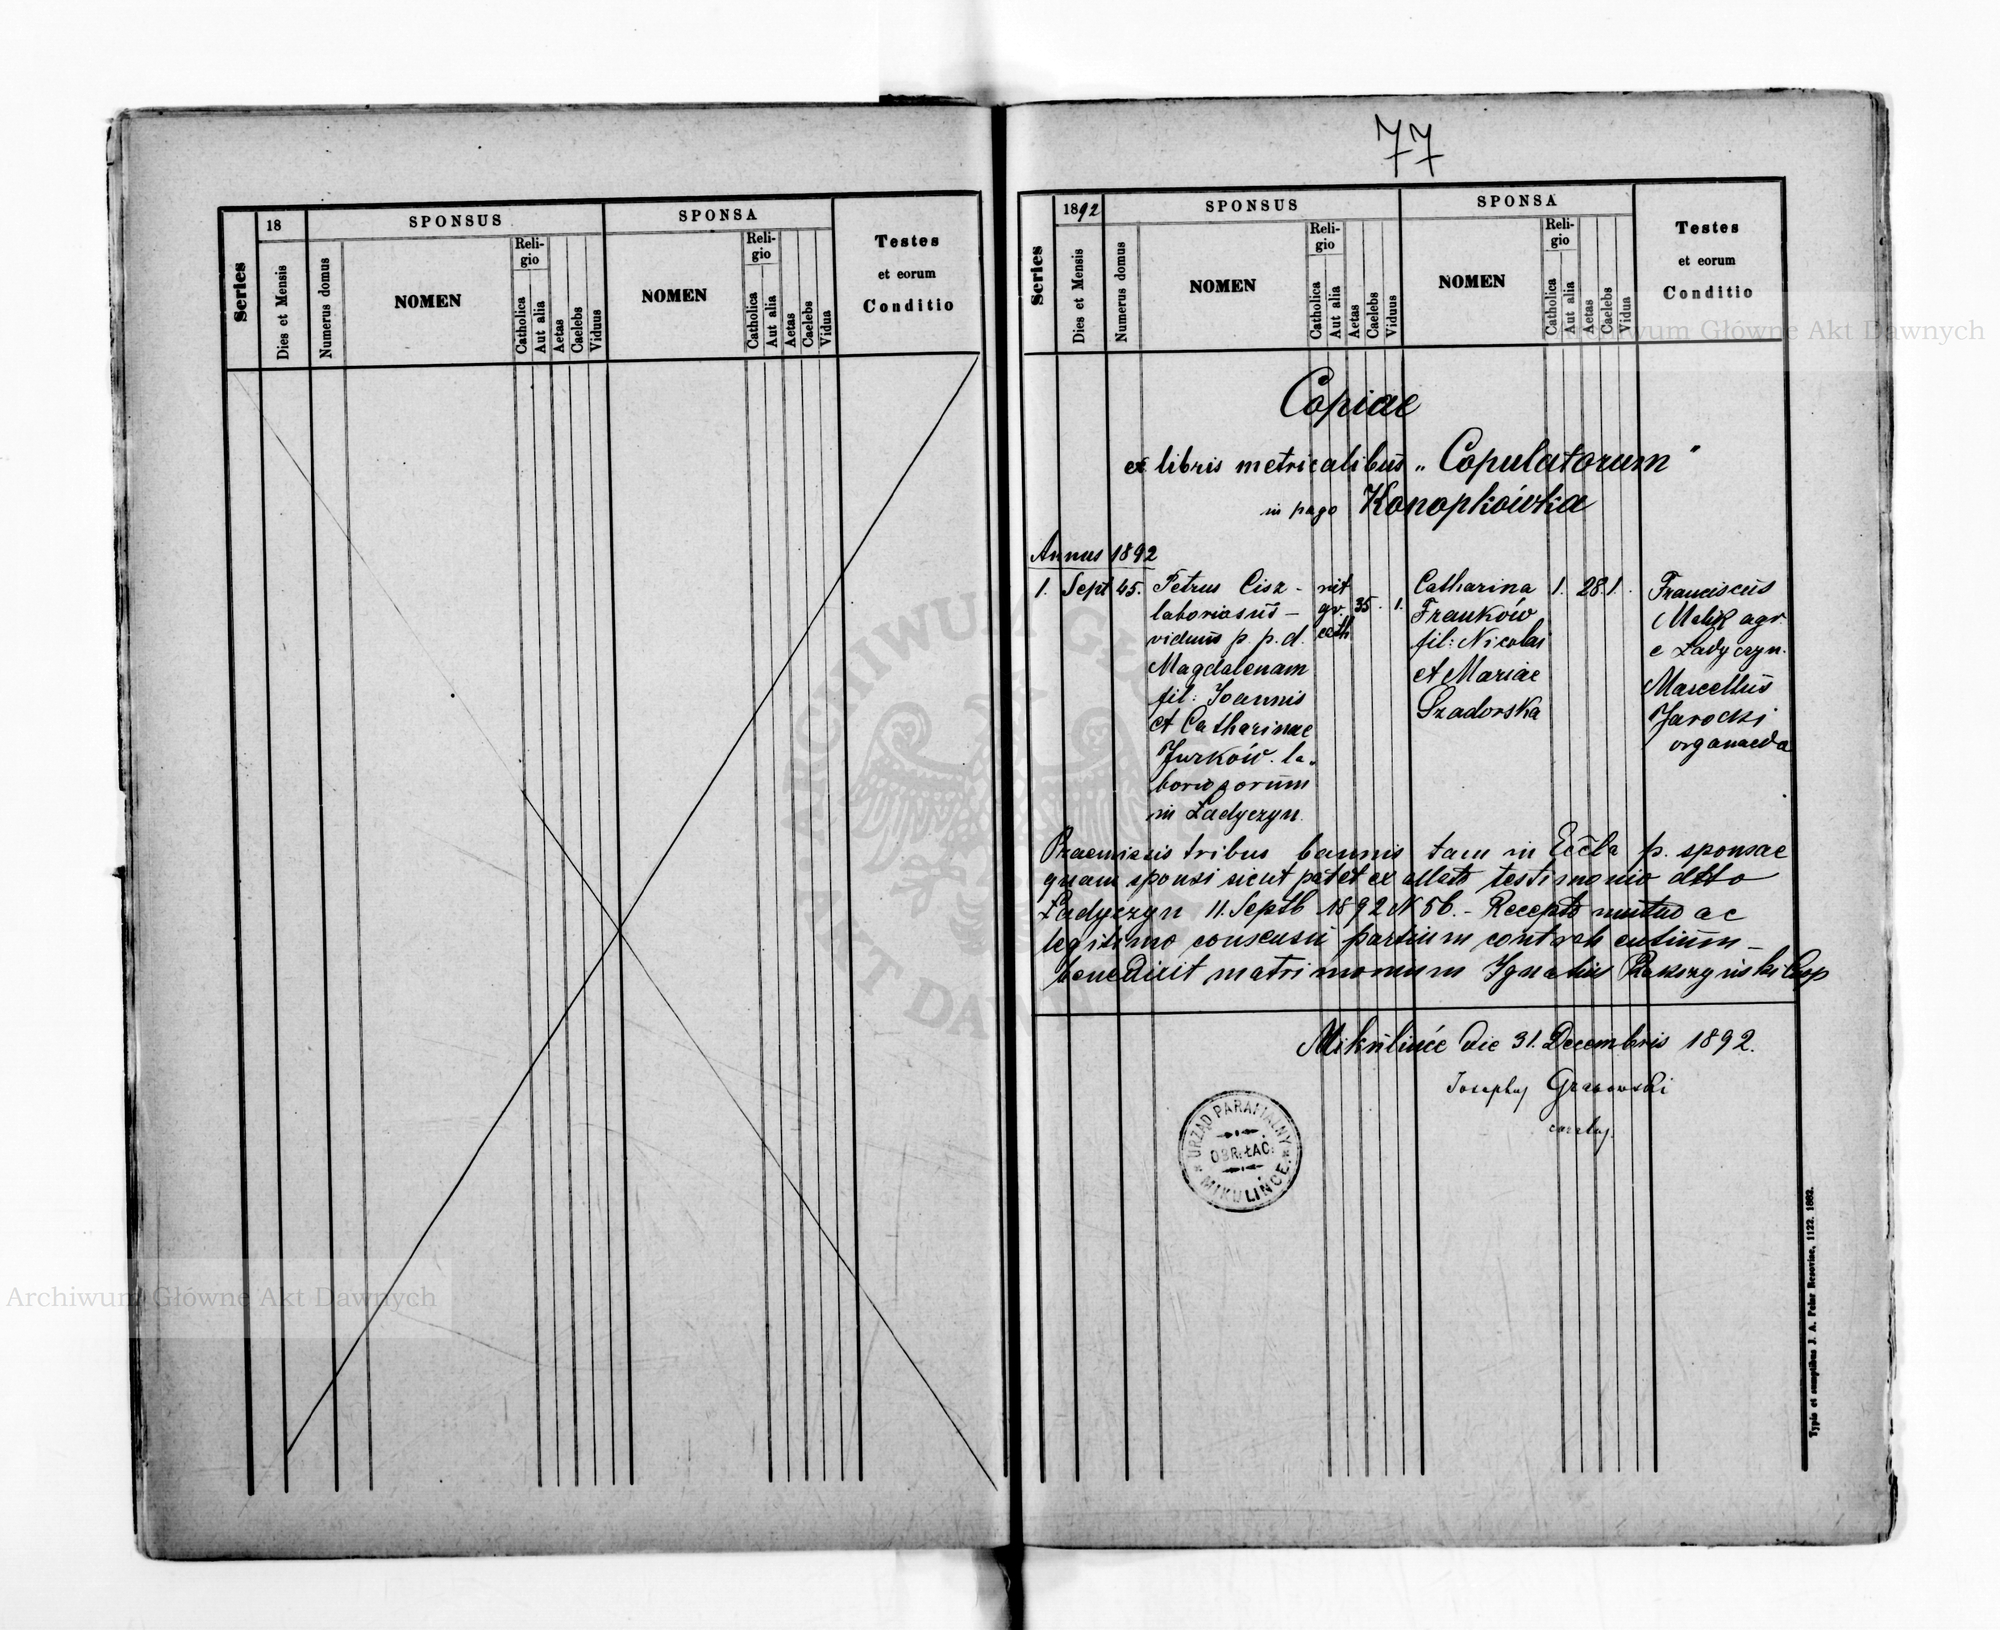 77
Series
18
Dies et Mensis
SPONSUS
Numerus domus
NOMEN
Religio
Catholica
Aut alia
Aetas
Caelebs
Viduus
SPONSA
NOMEN
Religio
Catholica
Aut alia
Aetas
Caelebs
Vidua
Testes
et eorum
Conditio
Series
1892
Dies et Mensis
SPONSUS
Numerus domus
NOMEN
Reli-
gio
Catholica
Aut alia
Aetas
Caelebs
Viduus
SPONSA
NOMEN
Reli-
gio
Catholica
Aut alia
Aetas
Caelebs
Vidua
Testes
et eorum
Conditio
Copiae
ex libris metricalibus „Copulatorum"
in pago Konopkówka
Annus 1892
1. Sept 45.
Petrus Cisz -
laboriosus -
viduus p. p. d.
Magdalenam
fil: Joannis
et Catharinae
Jurków. la-
boriosorum
in Ładyczyn.
rit
gr.
cath
35. 1.
Catharina
Franków
fil: Nicolai
et Mariae
Szadorska
1. 28 1.
Franciscus
Malik agr.
e Ładyczyn.
Marcellus
Jarocki
organaeda
Praemissis tribus bannis tam in Eccla p. sponsae
quam sponsi sicut patet ex allato testimonio ddto
Ładyczyn 11. Septb 1892 N 56. - Recepto mutuo ac
legitimo consensu partium contrahentium -
benedixit matrimonium Ignatius
Mikulińce die 31. Decembris 1892.
Josephus
URZĄD PARAFIALNY
OBR. ŁAĆ.
MIKULIŃCE
Typis et sumptibus J. A. Pelar Resoviae, 1122. 1882.
Archiwum Główne Akt Dawnych
Archiwum Główne Akt Dawnych
ARCHIWUM GŁÓWNE AKT DAWNYCH